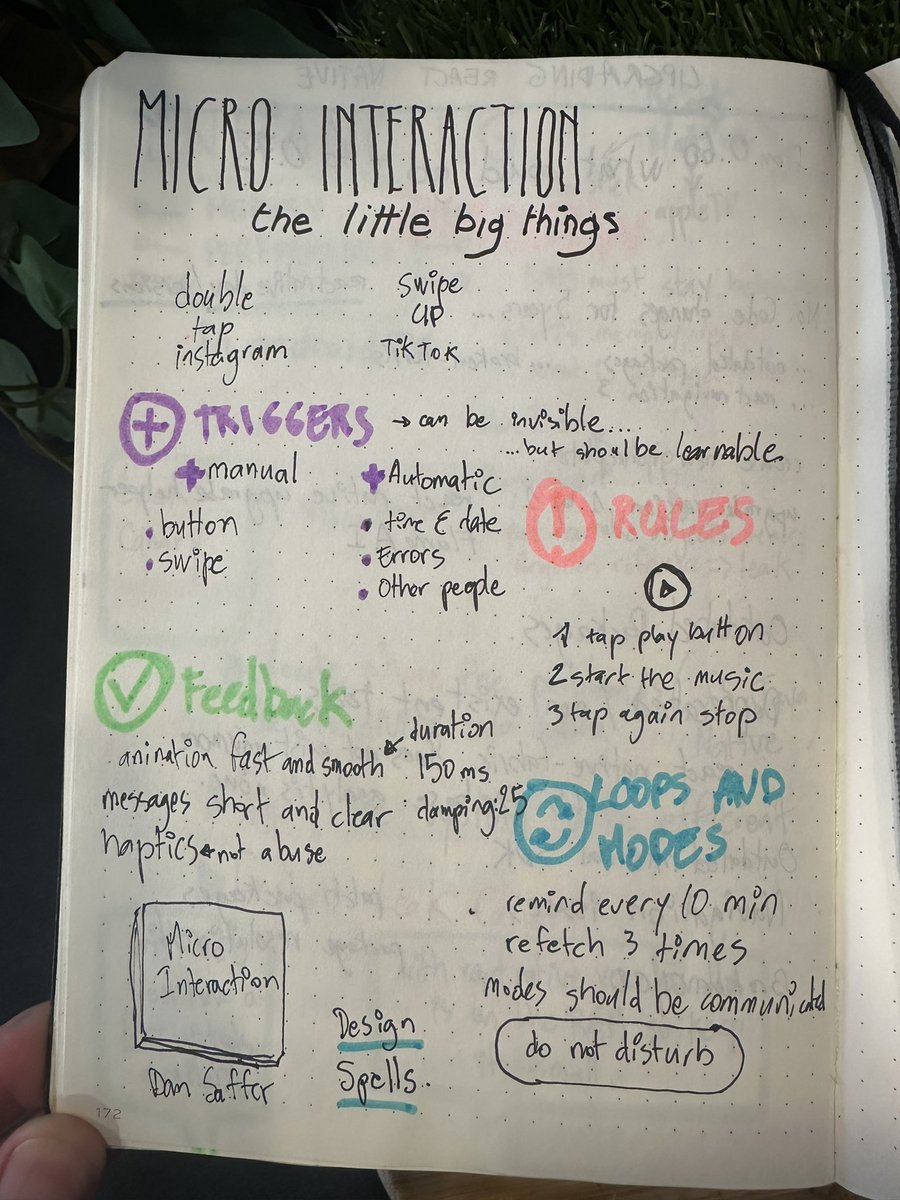 MICRO INTERACTION
the little big things
double
tap
instagram
swipe
UP
TikTok
TRIGGERS → can be invisible....
...but should be learnable.
manual
• button
• swipe
Automatic
• time & date
• Errors
• Other people
RULES
1 tap play button
2 start the music
3 tap again stop
Feedback
animation fast and smooth
duration
150 ms
messages short and clear
damping: 25
haptics not abuse
LOOPS AND
MODES
• remind every 10 min
refetch 3 times
modes should be
do not disturb
Micro
Interaction
Dan Saffer
Design
Spells.
172
UPGRADING REACT NATIVE